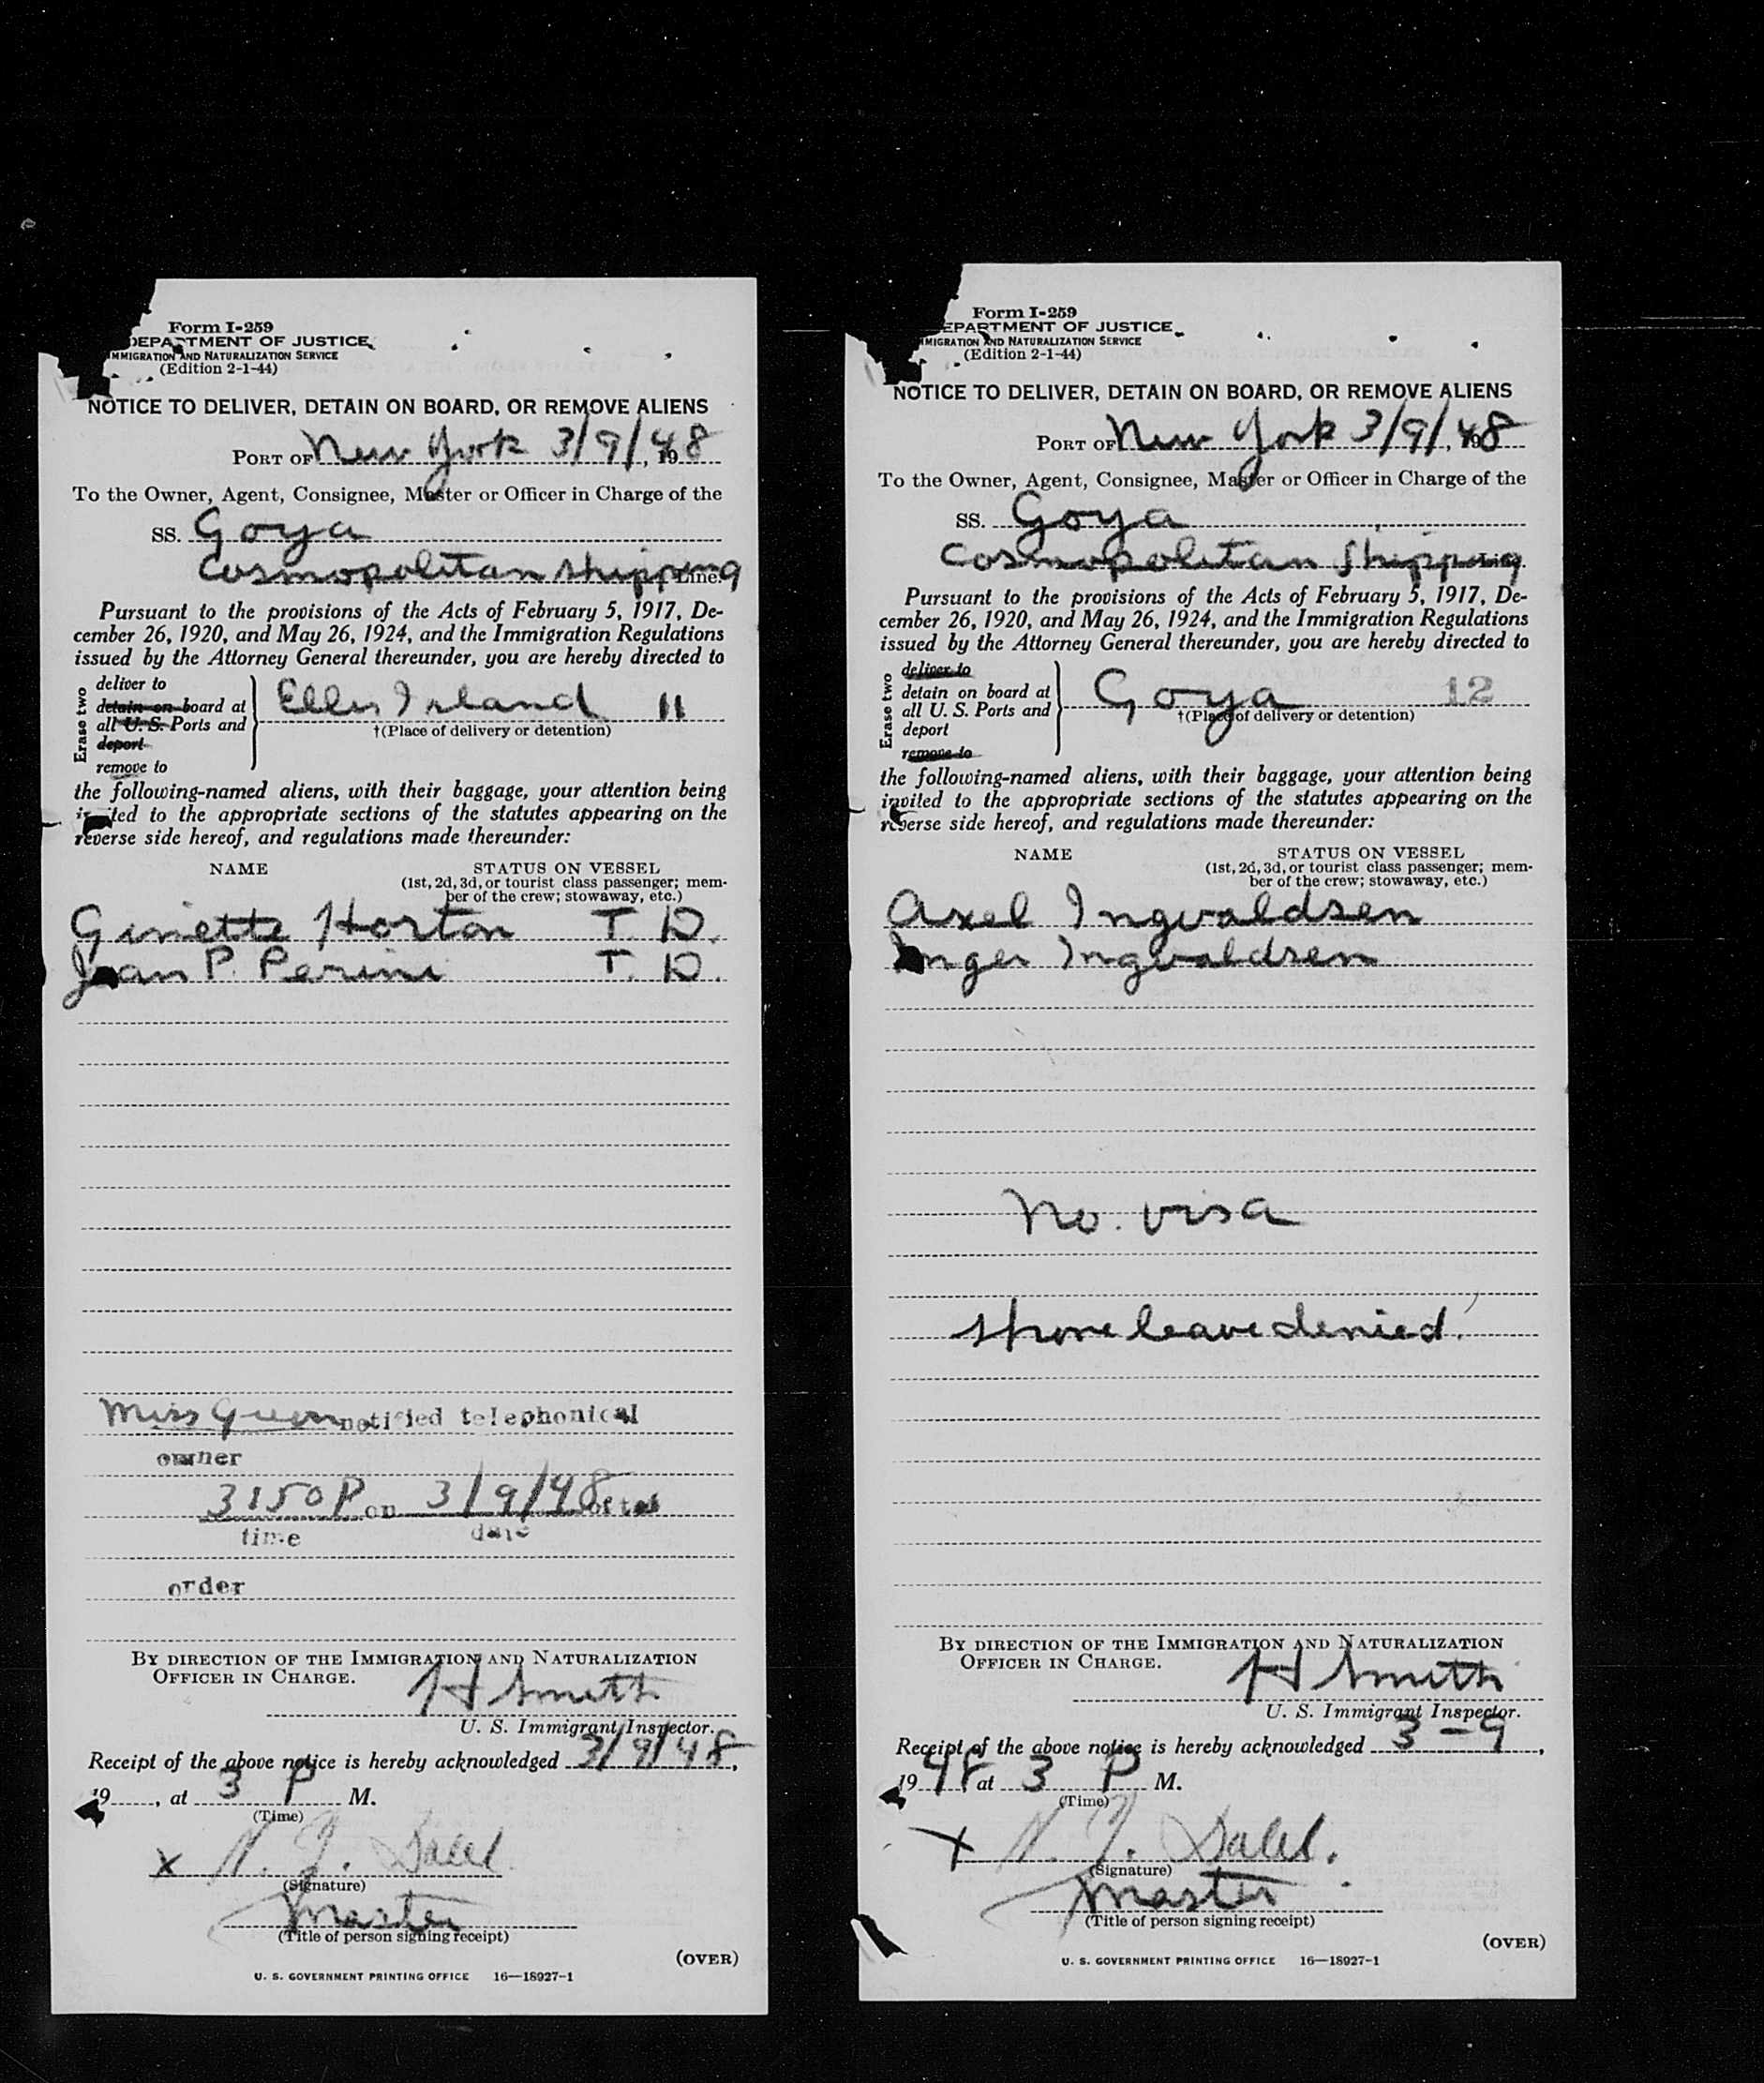 Form I-259
DEPARTMENT OF JUSTICE
IMMIGRATION AND NATURALIZATION SERVICE
(Edition 2-1-44)
NOTICE TO DELIVER, DETAIN ON BOARD, OR REMOVE ALIENS
PORT OF New York 3/9/, 1948
To the Owner, Agent, Consignee, Master or Officer in Charge of the
SS. Goya
Cosmopolitan Shipping Line
Pursuant to the provisions of the Acts of February 5, 1917, De-
cember 26, 1920, and May 26, 1924, and the Immigration Regulations
issued by the Attorney General thereunder, you are hereby directed to
Erase two
deliver to
detain on board at
all U. S. Ports and
deport
remove to
Ellis Island 11
†(Place of delivery or detention)
the following-named aliens, with their baggage, your attention being
invited to the appropriate sections of the statutes appearing on the
reverse side hereof, and regulations made thereunder:
NAME STATUS ON VESSEL
(1st, 2d, 3d, or tourist class passenger; mem-
ber of the crew; stowaway, etc.)
Ginette Horton T. D.
Jean P. Perini T. D.
Miss Green notified telephonical
owner
3150P on 3/9/48 of tel
time date
order
BY DIRECTION OF THE IMMIGRATION AND NATURALIZATION
OFFICER IN CHARGE.
H Smith
U. S. Immigrant Inspector.
Receipt of the above notice is hereby acknowledged 3/9/48,
19, at 3 P M.
(Time)
X N. J.
(Signature)
Master
(Title of person signing receipt)
(OVER)
U. S. GOVERNMENT PRINTING OFFICE 16—18927-1
Form I-259
DEPARTMENT OF JUSTICE
IMMIGRATION AND NATURALIZATION SERVICE
(Edition 2-1-44)
NOTICE TO DELIVER, DETAIN ON BOARD, OR REMOVE ALIENS
PORT OF New York 3/9/, 1948
To the Owner, Agent, Consignee, Master or Officer in Charge of the
SS. Goya
Cosmopolitan Shipping Line
Pursuant to the provisions of the Acts of February 5, 1917, De-
cember 26, 1920, and May 26, 1924, and the Immigration Regulations
issued by the Attorney General thereunder, you are hereby directed to
Erase two
deliver to
detain on board at
all U. S. Ports and
deport
remove to
Goya 12
†(Place of delivery or detention)
the following-named aliens, with their baggage, your attention being
invited to the appropriate sections of the statutes appearing on the
reverse side hereof, and regulations made thereunder:
NAME STATUS ON VESSEL
(1st, 2d, 3d, or tourist class passenger; mem-
ber of the crew; stowaway, etc.)
Axel Ingvaldsen
Inger Ingvaldsen
No. visa
shore leave denied.
BY DIRECTION OF THE IMMIGRATION AND NATURALIZATION
OFFICER IN CHARGE.
H Smith
U. S. Immigrant Inspector.
Receipt of the above notice is hereby acknowledged 3-9,
1948 at 3 P M.
(Time)
X N. J.
(Signature)
Master
(Title of person signing receipt)
(OVER)
U. S. GOVERNMENT PRINTING OFFICE 16—18927-1